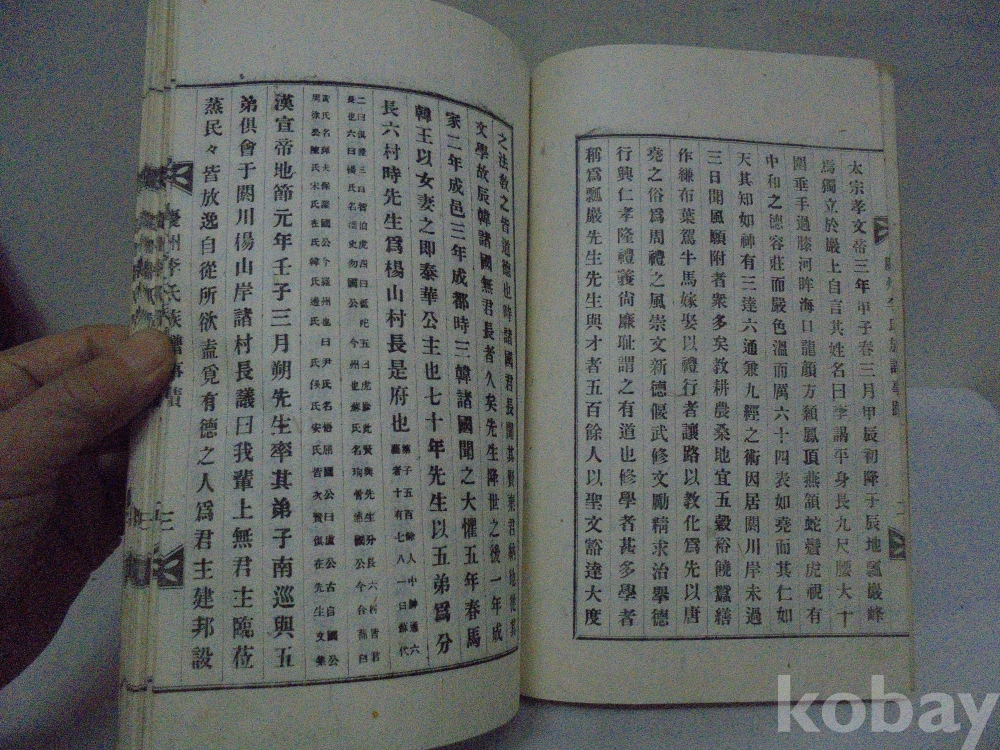 太宗孝文帝三年甲子春三月甲辰初降于辰地瓢巖峰
焉獨立於巖上自言其姓名曰李謁平身長九尺腰大十
圍垂手過膝河眸海口龍顏方顙鳳頂燕頷蛇鬢虎視有
中和之德容莊而嚴色溫而厲六十四表如堯而其仁如
天其知如神有三達六通兼九經之術因居閼川岸未過
三日聞風願附者衆多矣敎耕農桑地宜五穀裕饒蠶繕
作縑布葉駕牛馬嫁娶以禮行者讓路以敎化爲先以唐
堯之俗爲周禮之風崇文新德偃武修文勵精求治舉德
行興仁孝隆禮義尙廉耻謂之有道也修學者甚多學者
稱爲瓢巖先生先生與才者五百餘人以聖文豁達大度
之法敎之皆道德也時諸國君長聞其賢樂君納地使其
文學故辰韓諸國無君長者久矣先生降世之後一年成
家二年成邑三年成都時三韓諸國聞之大懼五年春馬
韓王以女妻之即泰華公主也七十年先生以五弟爲分
長六村時先生爲楊山村長是府也
漢宣帝地節元年壬子三月朔先生率其弟子南巡與五
弟俱會于閼川楊山岸諸村長議曰我輩上無君主臨莅
蒸民々皆放逸自從所欲盍覓有德之人爲君主建邦設
慶州李氏族譜事蹟
三
二
kobay